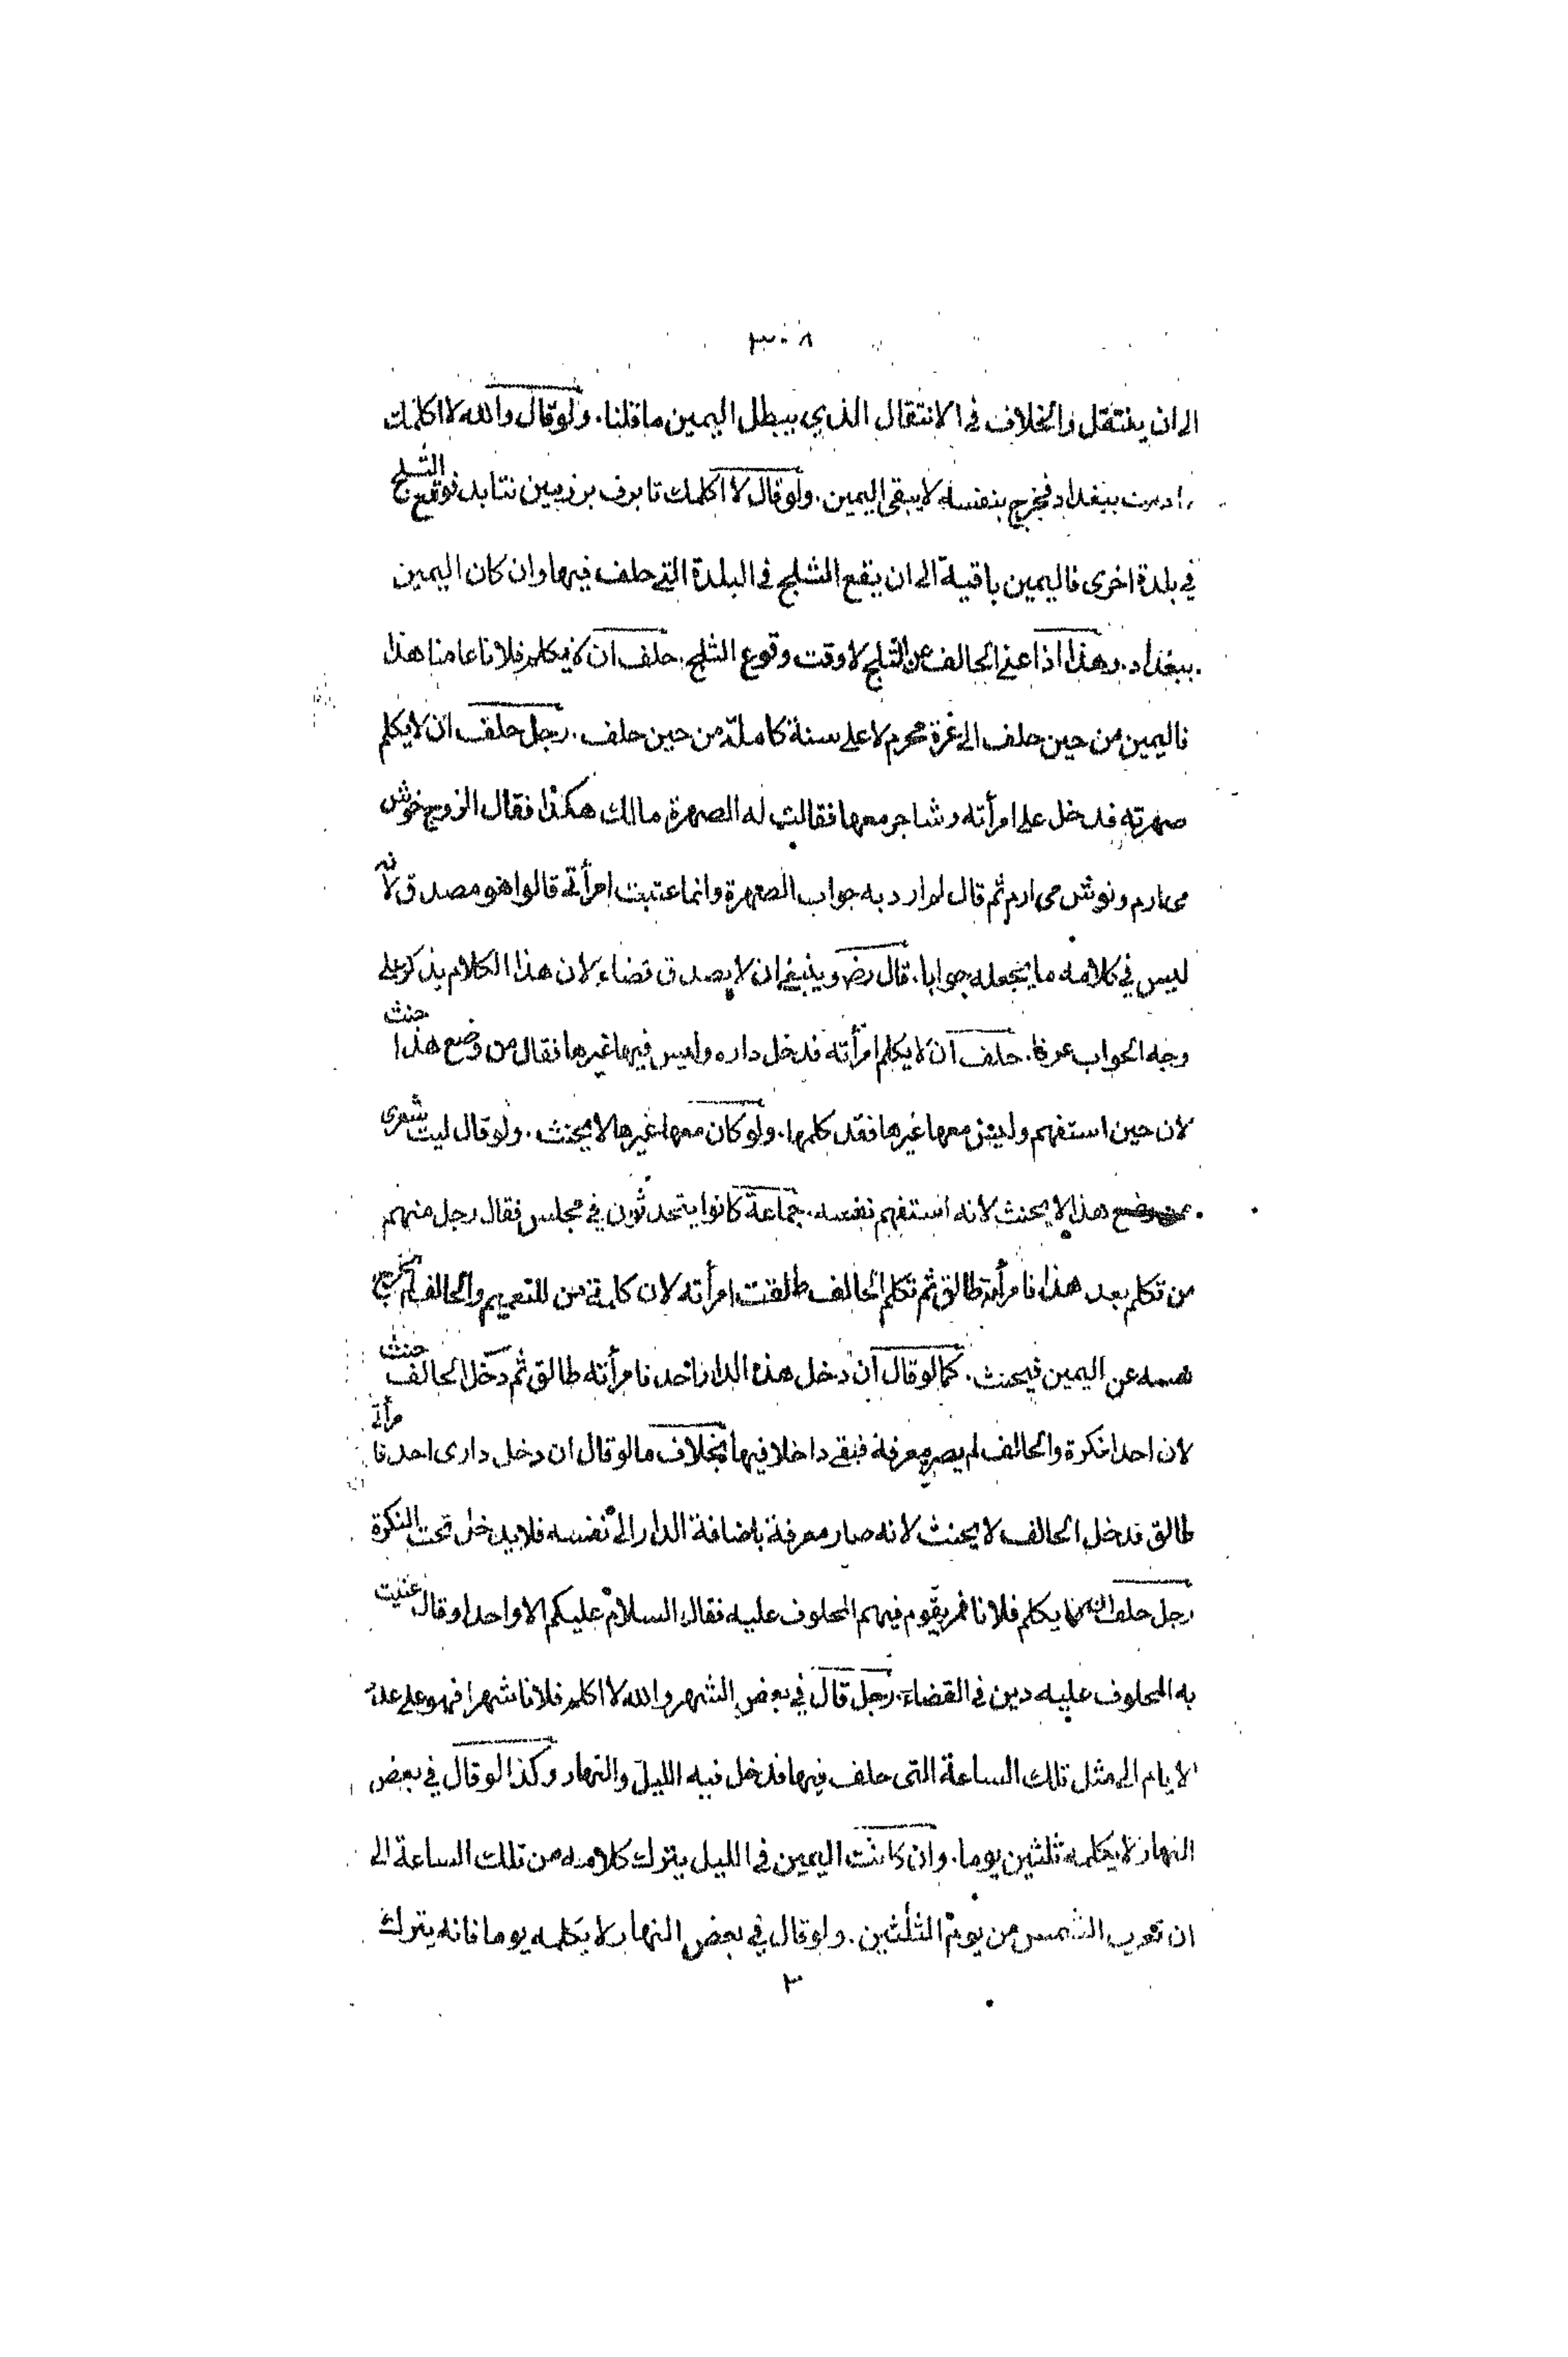 ٣٠٨
الى ان ينتقل والخلاف فى الانتقال الذي يبطل اليمين ما قلنا. ولو قال والله لا اكلمك
مادمت ببغداد فخرج بنفسه لا يبقى اليمين. ولو قال لا اكلمك تا برف برزمين نتابد فوقع الثلج
في بلدة اخرى فاليمين باقية الى ان يقع الثلج فى البلدة التي حلف فيها وان كان اليمين
ببغداد. وهذا اذا عنى الحالف عين الثلج لا وقت وقوع الثلج. حلف ان لا يكلم فلانا عامنا هذا
فاليمين من حين حلف الى غرة محرم لا على سنة كاملة من حين حلف. رجل حلف ان لا يكلم
صهرته فدخل على امرأته وشاجر معها فقالت له الصهرة مالك هكذا فقال الزوج خوش
مى ارم ونوش مى ارم ثم قال لم ارد به جواب الصهرة وانما عتبت امرأتى قالوا هو مصدق لانه
ليس في كلامه ما يجعله جوابا. قال رض وينبغى ان لا يصدق قضاء لان هذا الكلام يذكر على
وجه الجواب عرفا. حلف ان لا يكلم امرأته فدخل داره وليس فيها غيرها فقال من وضع هذا حنث
لان حين استفهم وليس معها غيرها فقد كلمها. ولو كان معها غيرها لا يحنث. ولو قال ليت شعرى
من وضع هذا لا يحنث لانه استفهم نفسه. جماعة كانوا يتحدثون في مجلس فقال رجل منهم
من تكلم بعد هذا فامرأته طالق ثم تكلم الحالف طلقت امرأته لان كلمة من للتعميم والحالف لم يخرج
نفسه عن اليمين فيحنث. كما لو قال ان دخل هذه الدار احد فامرأته طالق ثم دخل الحالف حنث
لان احدا نكرة والحالف لم يصر معرفة فبقي داخلا فيها بخلاف ما لو قال ان دخل دارى احد فامرأتى
طالق فدخل الحالف لا يحنث لانه صار معرفة باضافة الدار الى نفسه فلا يدخل تحت النكرة
رجل حلف ان لا يكلم فلانا فمر بقوم فيهم المحلوف عليه فقال السلام عليكم الا واحدا وقال عنيت
به المحلوف عليه دين فى القضاء. رجل قال في بعض الشهر والله لا اكلم فلانا شهرا فهو على عدة
الايام الى مثل تلك الساعة التى حلف فيها فدخل فيه الليل والنهار وكذا لو قال في بعض
النهار لا يكلمه ثلثين يوما. وان كانت اليمين فى الليل يترك كلامه من تلك الساعة الى
ان تغرب الشمس من يوم الثلثين. ولو قال في بعض النهار لا يكلمه يوما فانه يترك
٣